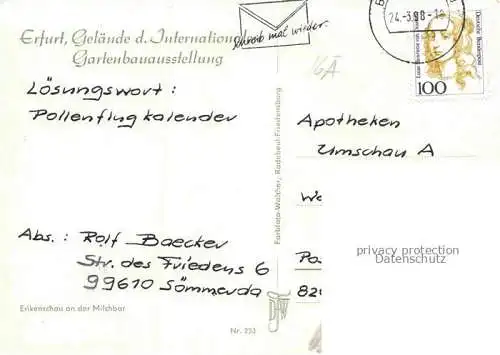 Erfurt, Gelände d. International
Gartenbauausstellung
Schreib mal wieder.
24.-3.98-18
Deutsche Bundespost
100
Lösungswort:
Pollenflugkalender
Apotheken
Umschau A
We
Abs.: Rolf Baecker
Str. des Friedens 6
99610 Sömmerda
Pos
82
privacy protection
Datenschutz
Farbfoto-Walther, Radebeul-Friedensburg
Erikenschau an der Milchbar
Nr. 253